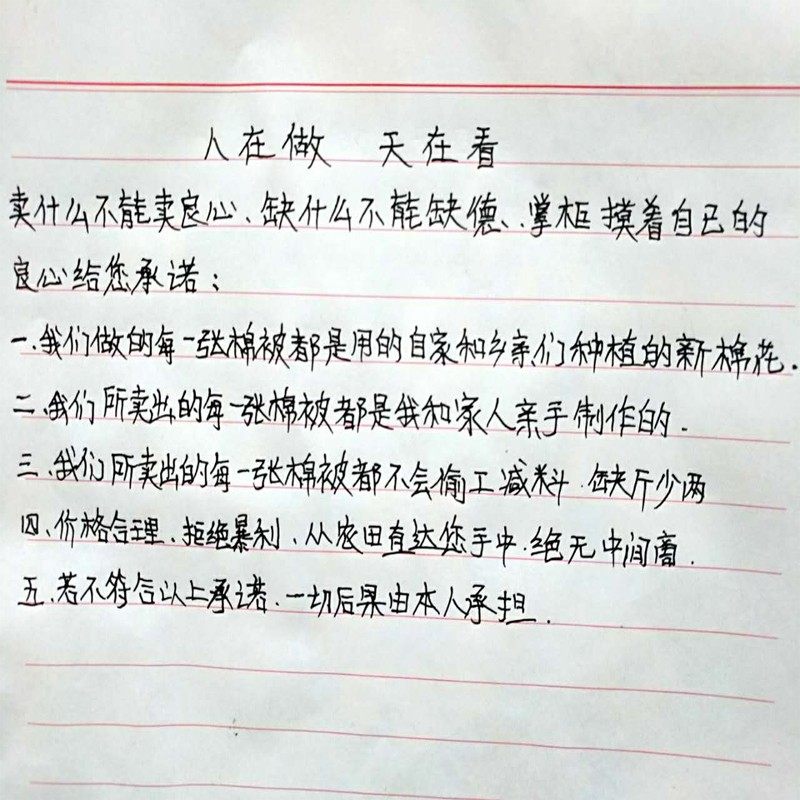 人在做 天在看
卖什么不能卖良心、缺什么不能缺德、掌柜摸着自己的
良心给您承诺：
一、我们做的每一张棉被都是用的自家和乡亲们种植的新棉花.
二、我们所卖出的每一张棉被都是我和家人亲手制作的.
三、我们所卖出的每一张棉被都不会偷工减料.缺斤少两
四、价格合理、拒绝暴利、从农田直达您手中.绝无中间商.
五、若不符合以上承诺.一切后果由本人承担.